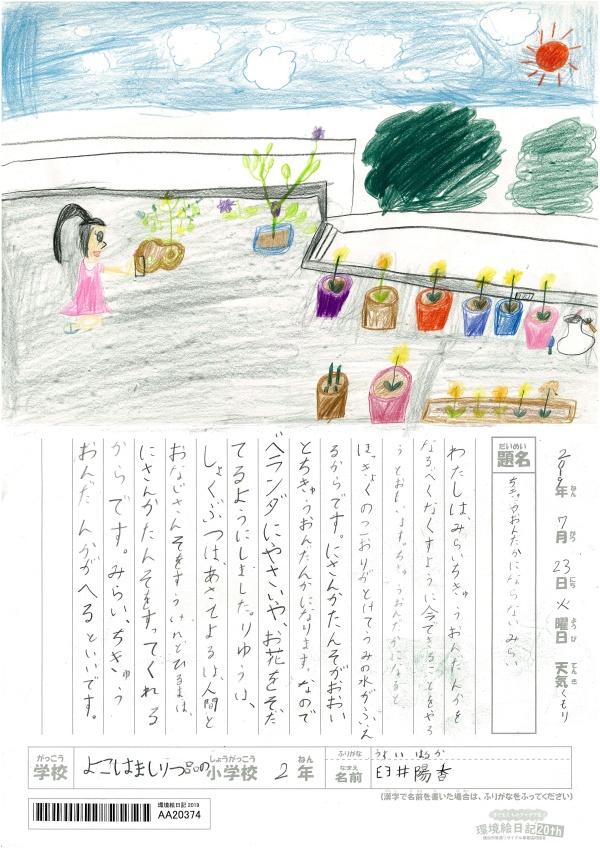 2019年 7月 23日 火曜日 天気 くもり
ねん がつ にち ようび てんき
だいめい
題名
ちきゅうおんだんかにならないみらい
わたしは、みらいちきゅうおんだんかを
なるべくなくすように今できることをやろ
うとおもいます。ちきゅうおんだんかになると
ほっきょくのこおりがとけてうみの水がふえ
るからです。にさんかたんそがおおい
とちきゅうおんだんかになります。なので
ベランダにやさいや、お花をそだ
てるようにしました。りゆうは、
しょくぶつは、あさとよるは、人間と
おなじさんそをすうけれどひるまは、
にさんかたんそをすってくれる
からです。みらい、ちきゅう
おんだんかがへるといいです。
がっこう しょうがっこう ねん
学校 よこはましりつ品の小学校 2年
ふりがな うすい はるか
なまえ
名前 臼井陽香
(漢字で名前を書いた場合は、ふりがなをふってください)
環境絵日記 2019
AA20374
環境絵日記20th